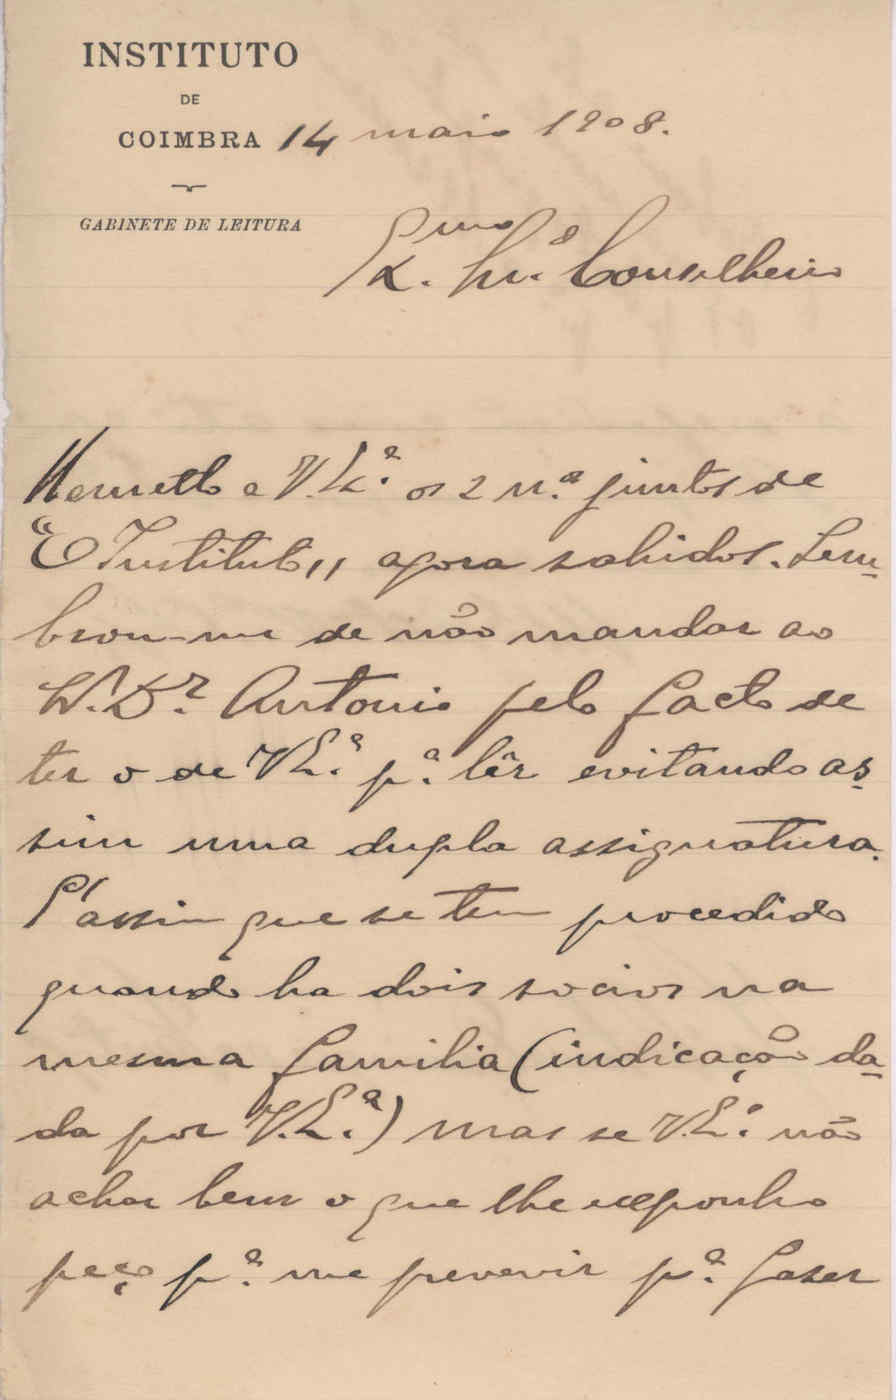 INSTITUTO
DE
COIMBRA 14 maio 1908.
GABINETE DE LEITURA
Exmo Snr. Conselheiro
Remetto a V. Exª. os 2 n.os juntos de
"O Instituto,, agora sahidos. Lem-
brou-me de não mandar ao
Dr. Antonio pelo facto de
ter o de V Exª. pª. lêr evitando as-
sim uma dupla assignatura.
É assim que se tem procedido
quando ha dois socios na
mesma familia (indicação da-
da por V. Exª.) mas se V. Exª. não
achar bem o que lhe exponho
peço pª. me prevenir pª. faser